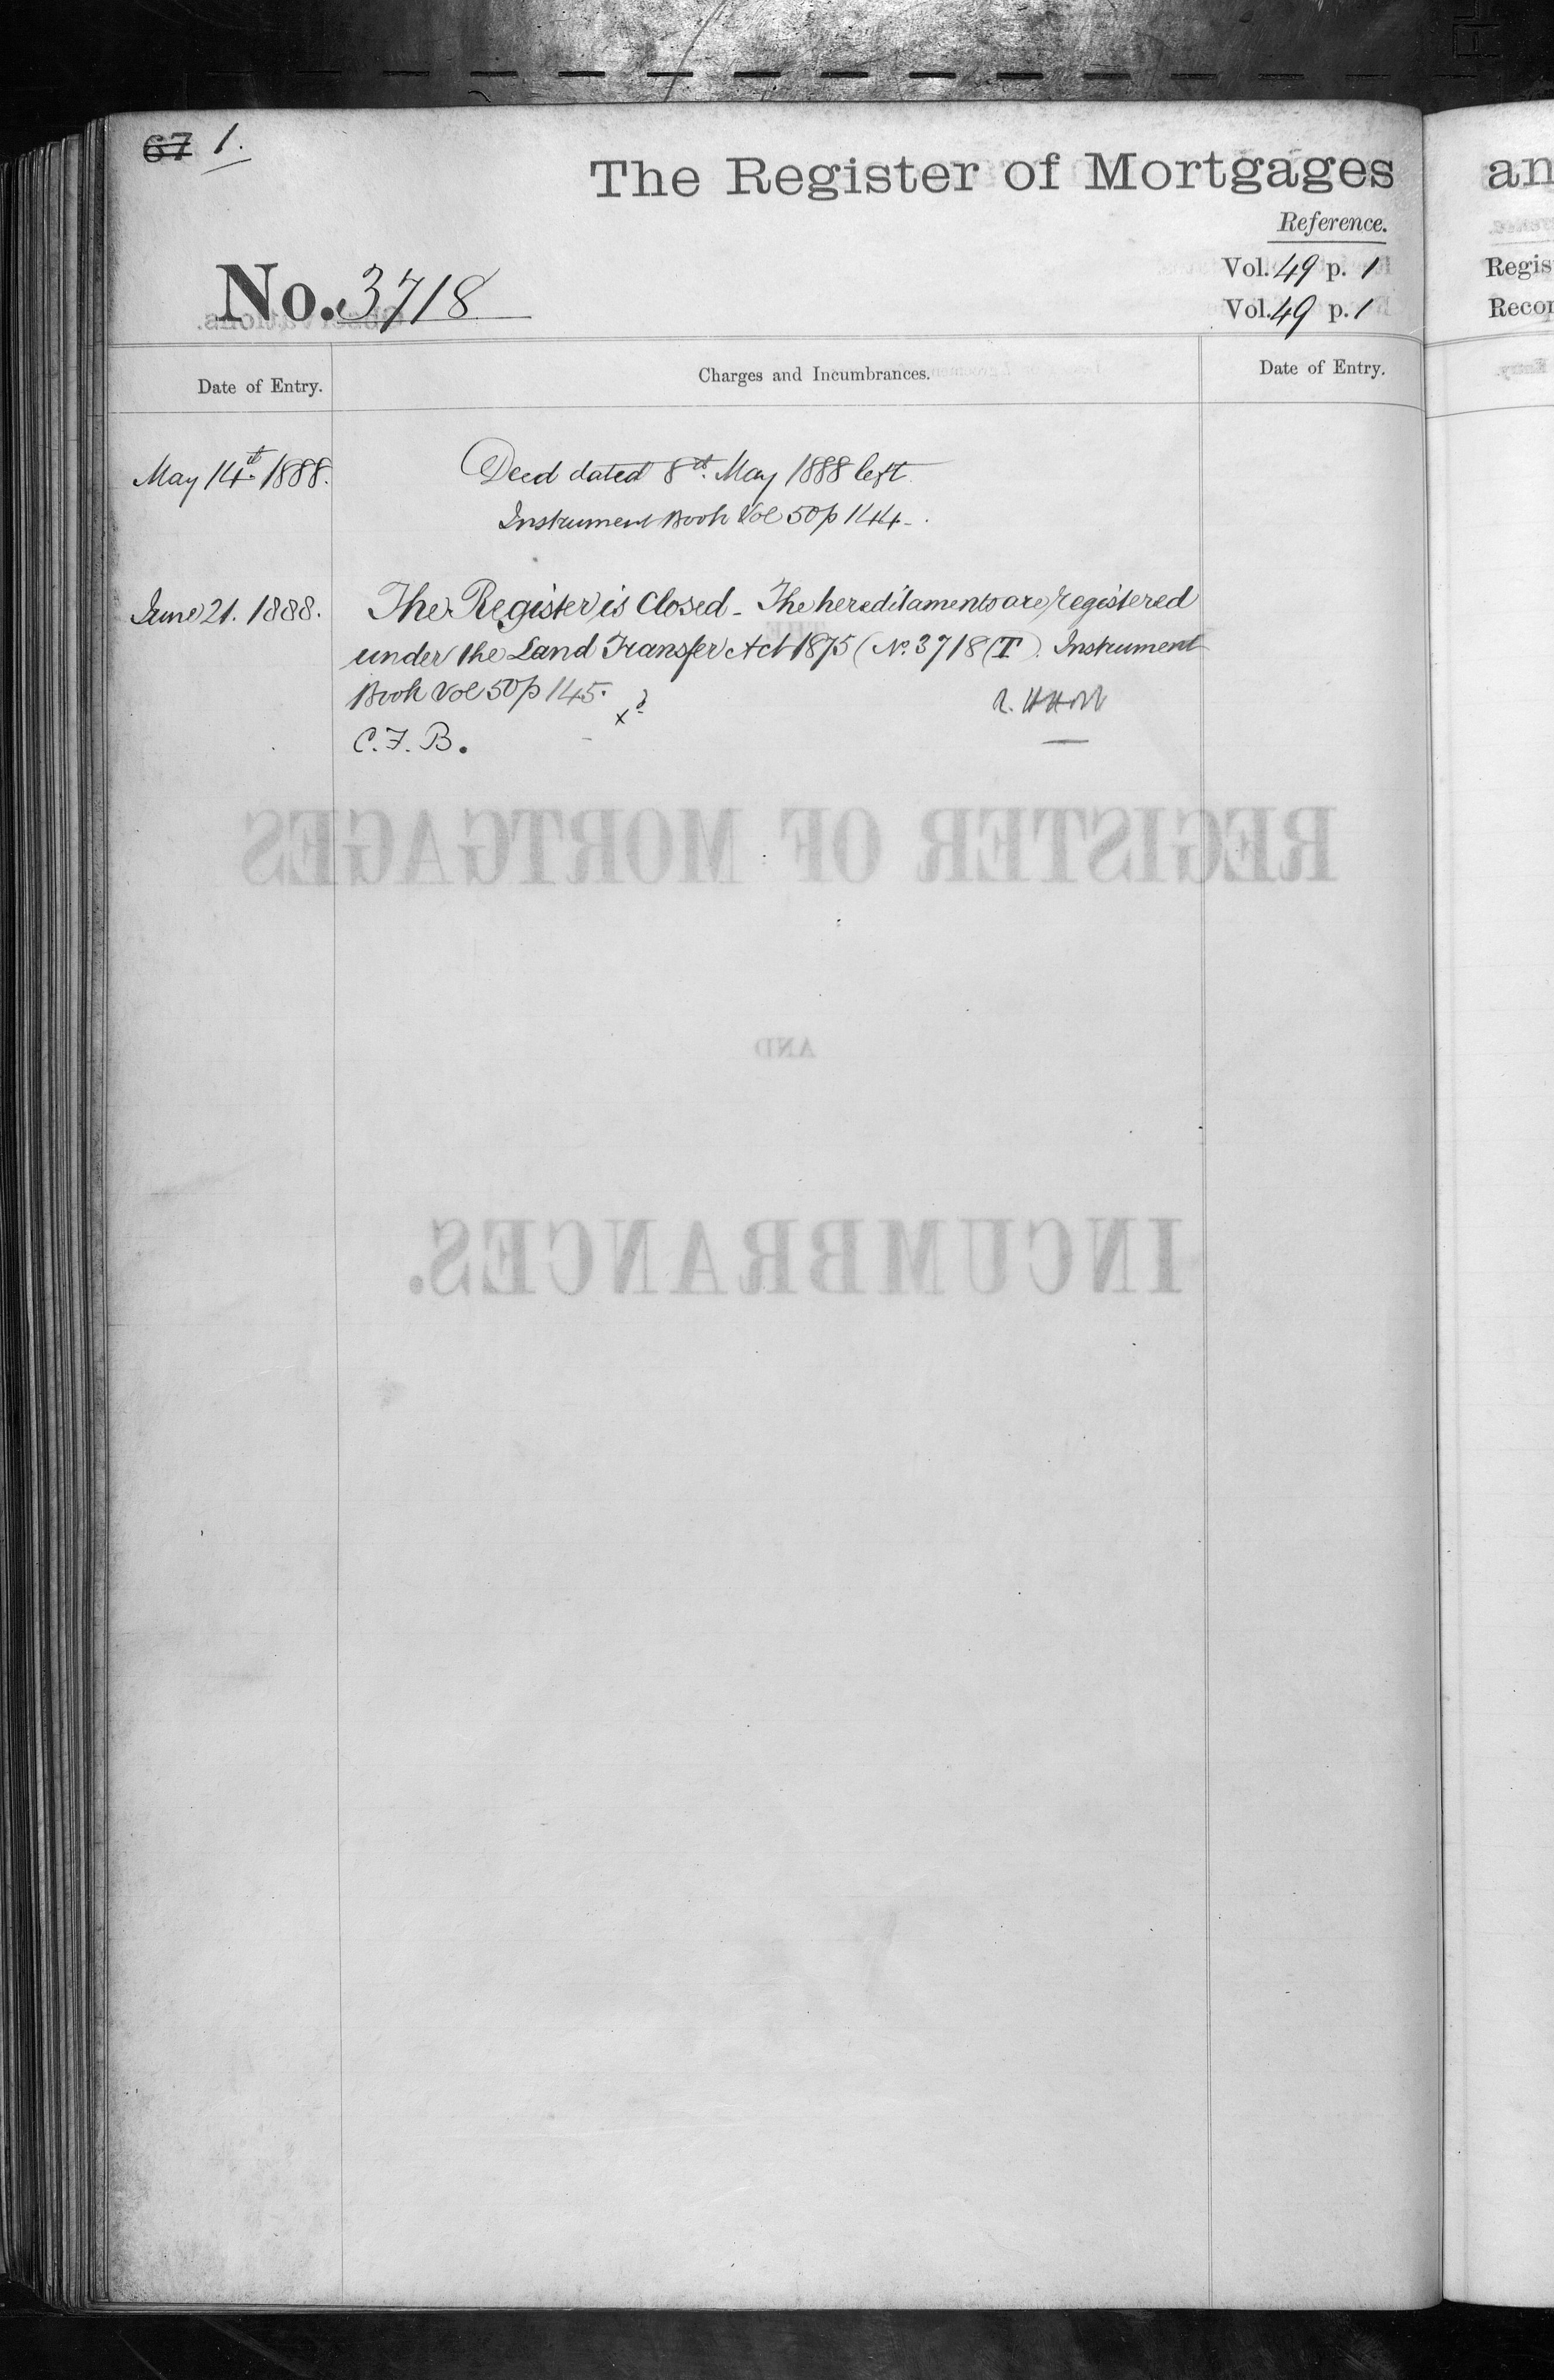 67 1.
The Register of Mortgages an
Reference.
No. 3718
Vol. 49 p. 1 Regis
Vol. 49 p. 1 Recor
Date of Entry. Charges and Incumbrances. Date of Entry.
May 14th. 1888. Deed dated 8th. May 1888 left
Instrument Book Vol 50 p 144.
June 21. 1888. The Register is Closed - The hereditaments are registered
under the Land Transfer Act 1875 (No. 3718 (T). Instrument
Book Vol 50 p 145.
C. F. B.
REGISTER OF MORTGAGES
AND
INCUMBRANCES.